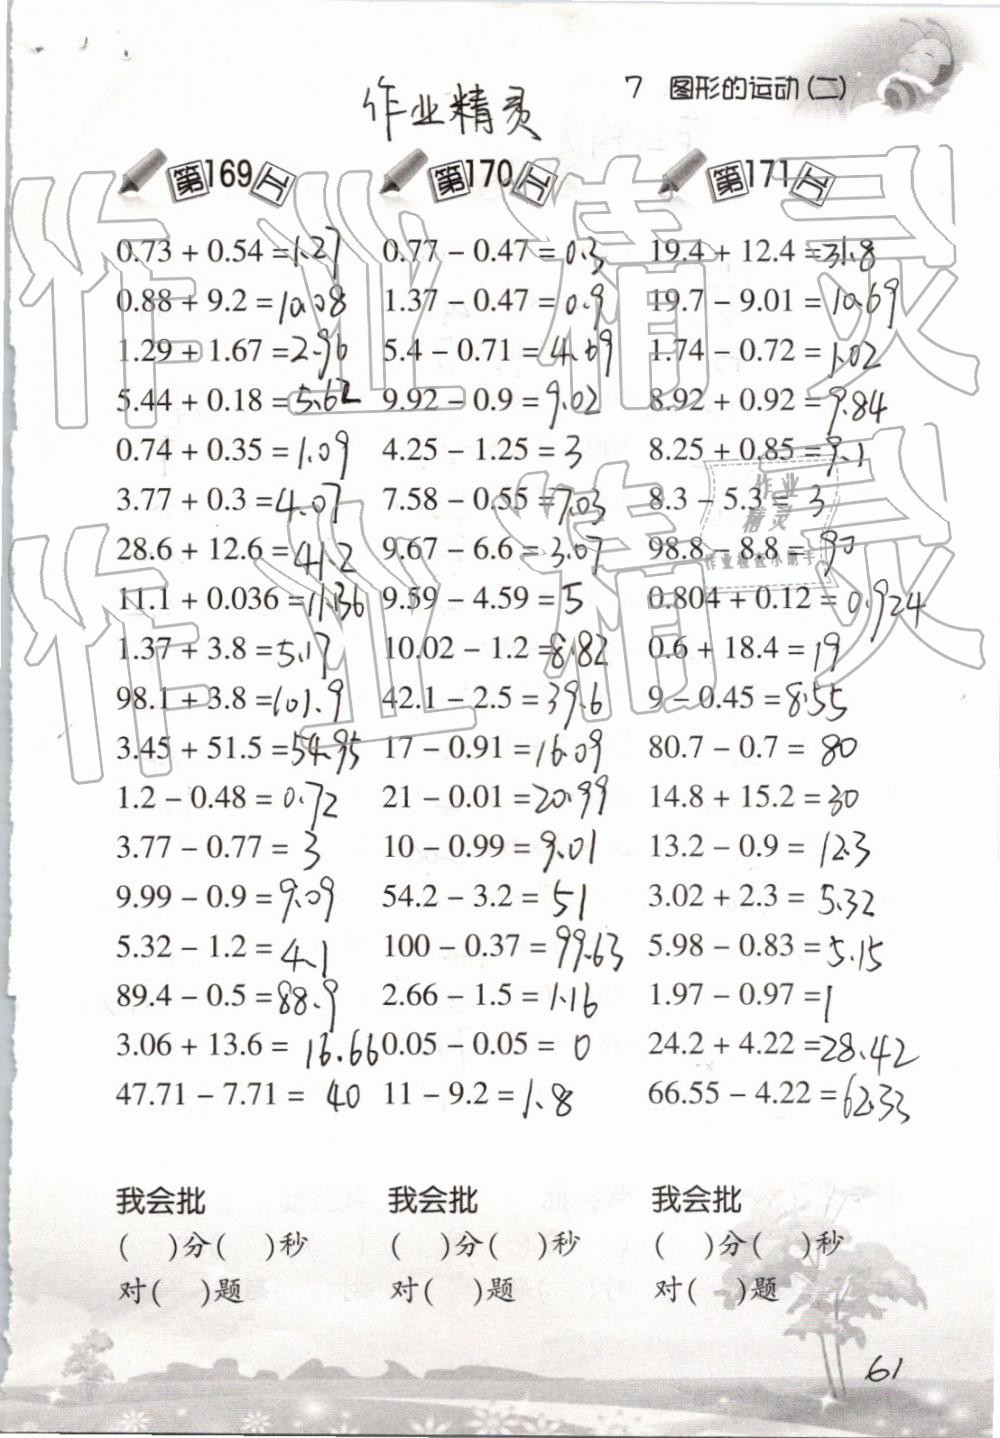 7 图形的运动(二)
作业精灵
第169天
0.73 + 0.54 = 1.27
0.88 + 9.2 = 10.08
1.29 + 1.67 = 2.96
5.44 + 0.18 = 5.62
0.74 + 0.35 = 1.09
3.77 + 0.3 = 4.07
28.6 + 12.6 = 41.2
11.1 + 0.036 = 11.136
1.37 + 3.8 = 5.17
98.1 + 3.8 = 101.9
3.45 + 51.5 = 54.95
1.2 − 0.48 = 0.72
3.77 − 0.77 = 3
9.99 − 0.9 = 9.09
5.32 − 1.2 = 4.1
89.4 − 0.5 = 88.9
3.06 + 13.6 = 16.66
47.71 − 7.71 = 40
我会批
( )分( )秒
对( )题
第170天
0.77 − 0.47 = 0.3
1.37 − 0.47 = 0.9
5.4 − 0.71 = 4.69
9.92 − 0.9 = 9.02
4.25 − 1.25 = 3
7.58 − 0.55 = 7.03
9.67 − 6.6 = 3.07
9.59 − 4.59 = 5
10.02 − 1.2 = 8.82
42.1 − 2.5 = 39.6
17 − 0.91 = 16.09
21 − 0.01 = 20.99
10 − 0.99 = 9.01
54.2 − 3.2 = 51
100 − 0.37 = 99.63
2.66 − 1.5 = 1.16
0.05 − 0.05 = 0
11 − 9.2 = 1.8
我会批
( )分( )秒
对( )题
第171天
19.4 + 12.4 = 31.8
19.7 − 9.01 = 10.69
1.74 − 0.72 = 1.02
8.92 + 0.92 = 9.84
8.25 + 0.85 = 9.1
8.3 − 5.3 = 3
98.8 − 8.8 = 90
0.804 + 0.12 = 0.924
0.6 + 18.4 = 19
9 − 0.45 = 8.55
80.7 − 0.7 = 80
14.8 + 15.2 = 30
13.2 − 0.9 = 12.3
3.02 + 2.3 = 5.32
5.98 − 0.83 = 5.15
1.97 − 0.97 = 1
24.2 + 4.22 = 28.42
66.55 − 4.22 = 62.33
我会批
( )分( )秒
对( )题
作业精灵
作业精灵
作业
精灵
61